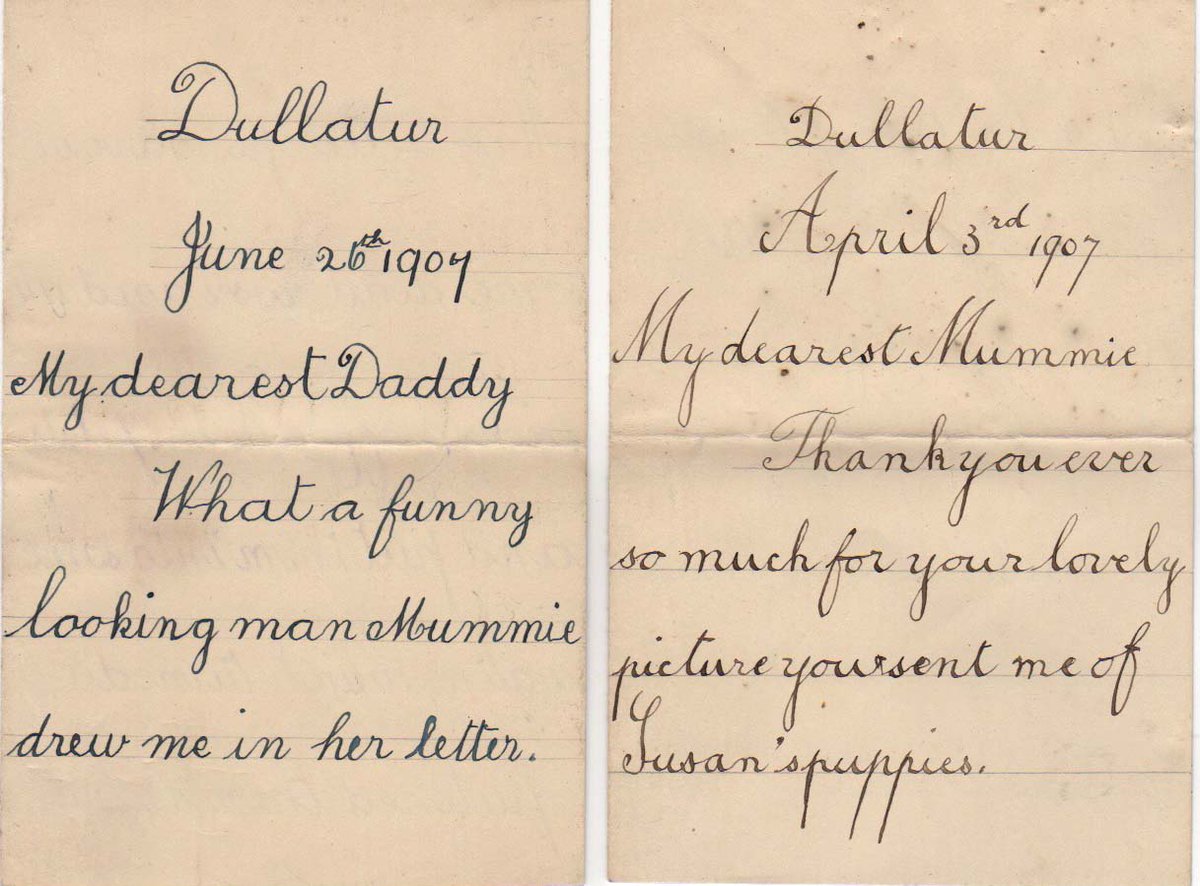 Dullatur
June 26th 1907
My dearest Daddy
What a funny
looking man Mummie
drew me in her letter.
Dullatur
April 3rd 1907
My dearest Mummie
Thank you ever
so much for your lovely
picture you sent me of
Susan's puppies.